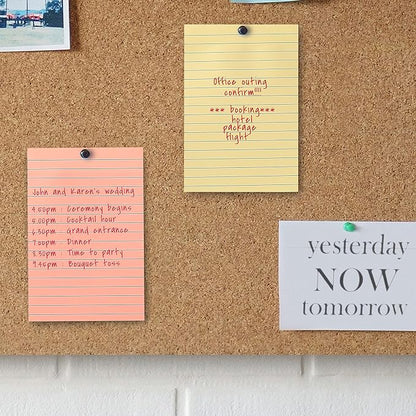 Office outing
confirm!!!
*** Booking***
hotel
package
flight
John and Karen's wedding
4.00pm : Ceremony begins
5.00pm : Cocktail hour
6.30pm : Grand entrance
7.00pm : Dinner
8.30pm : Time to party
9.45pm : Bouquet toss
yesterday
NOW
tomorrow